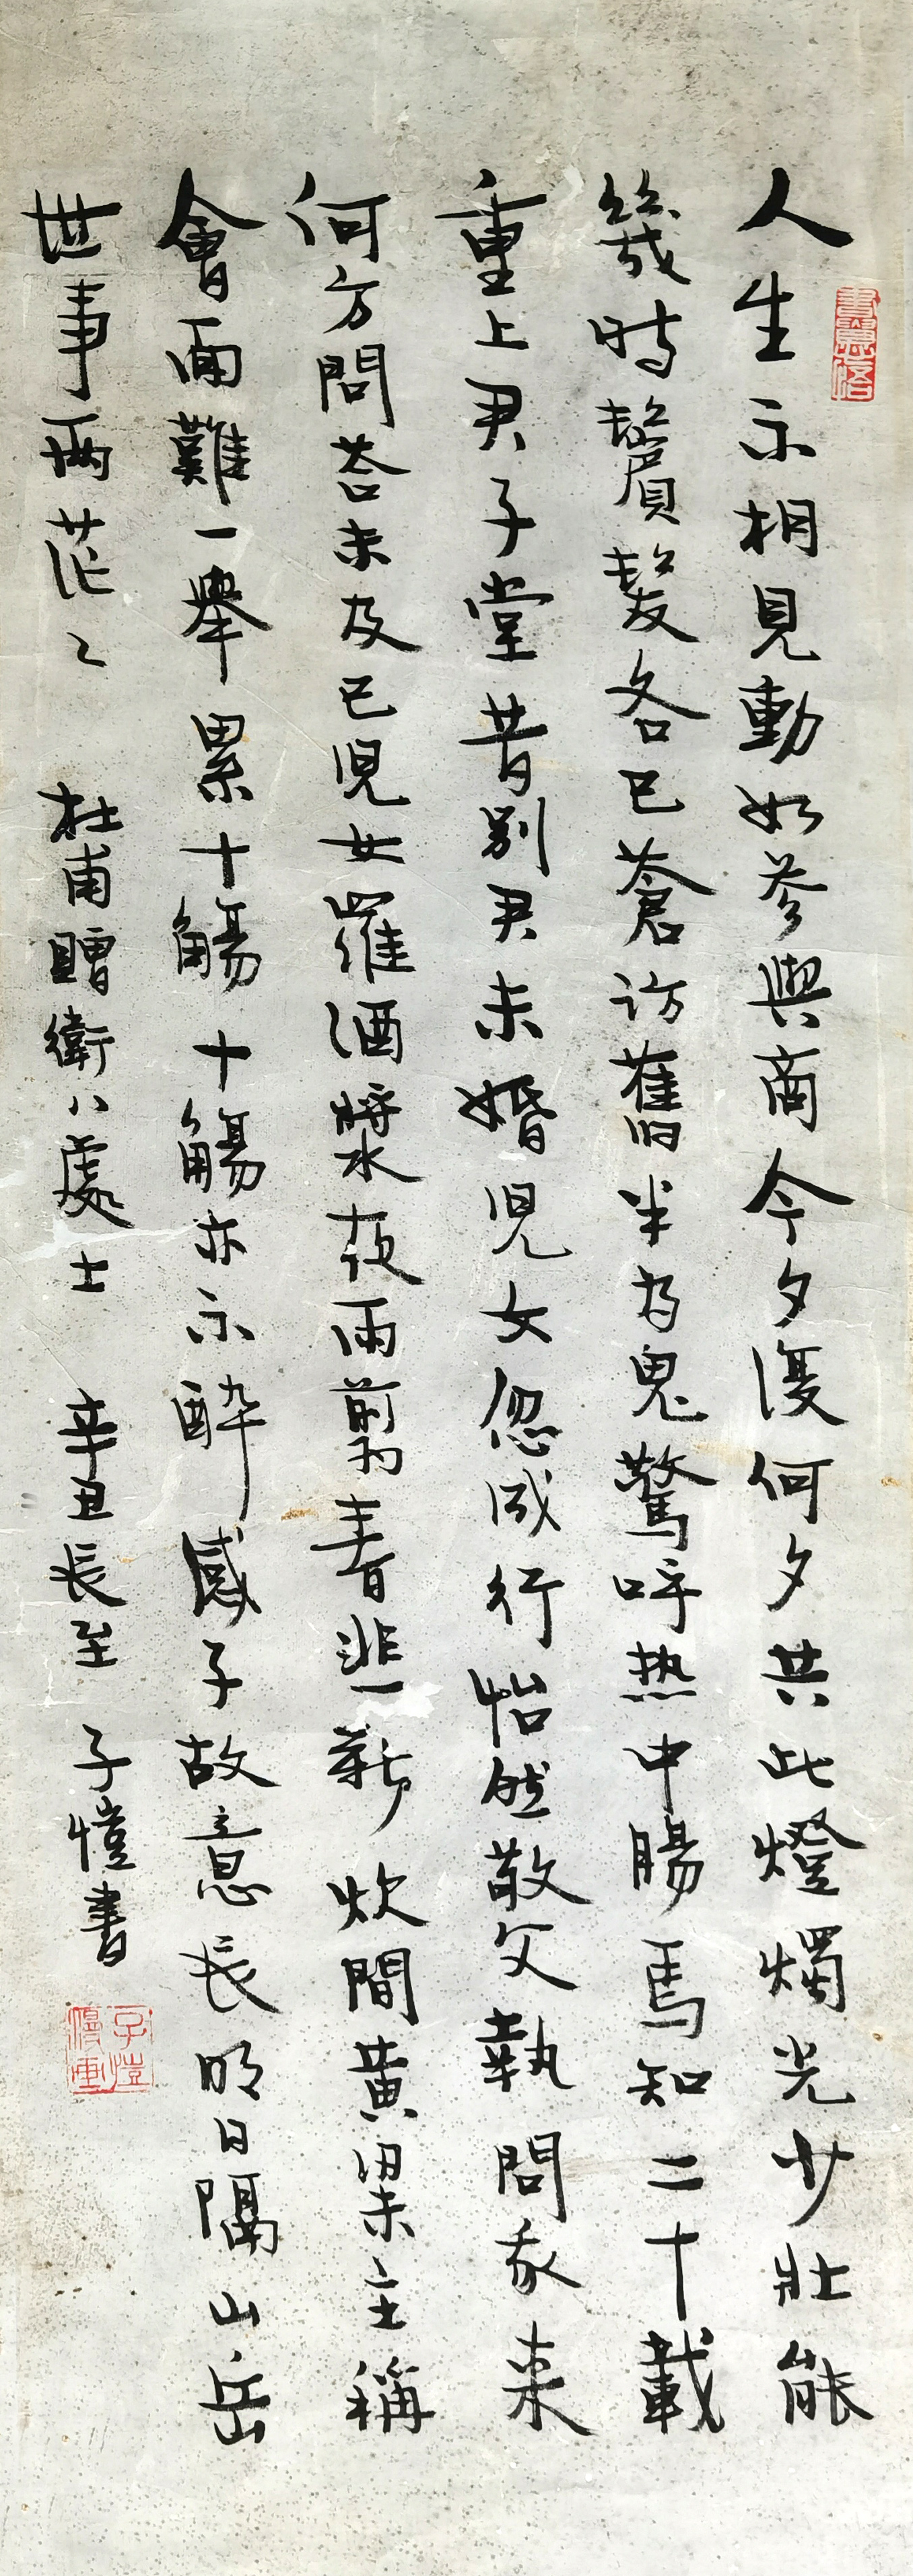 人生不相見動如參與商今夕復何夕共此燈燭光少壯能
幾時鬢髮各已蒼訪舊半為鬼驚呼热中腸焉知二十載
重上君子堂昔別君未婚児女忽成行怡然敬父執問我来
何方問荅未及已児女羅酒漿夜雨剪春韭新炊間黃粱主稱
會面難一舉累十觴十觴亦不醉感子故意長明日隔山岳
世事兩茫〻 杜甫贈衛八處士 辛丑長至 子愷書
子愷漫畫